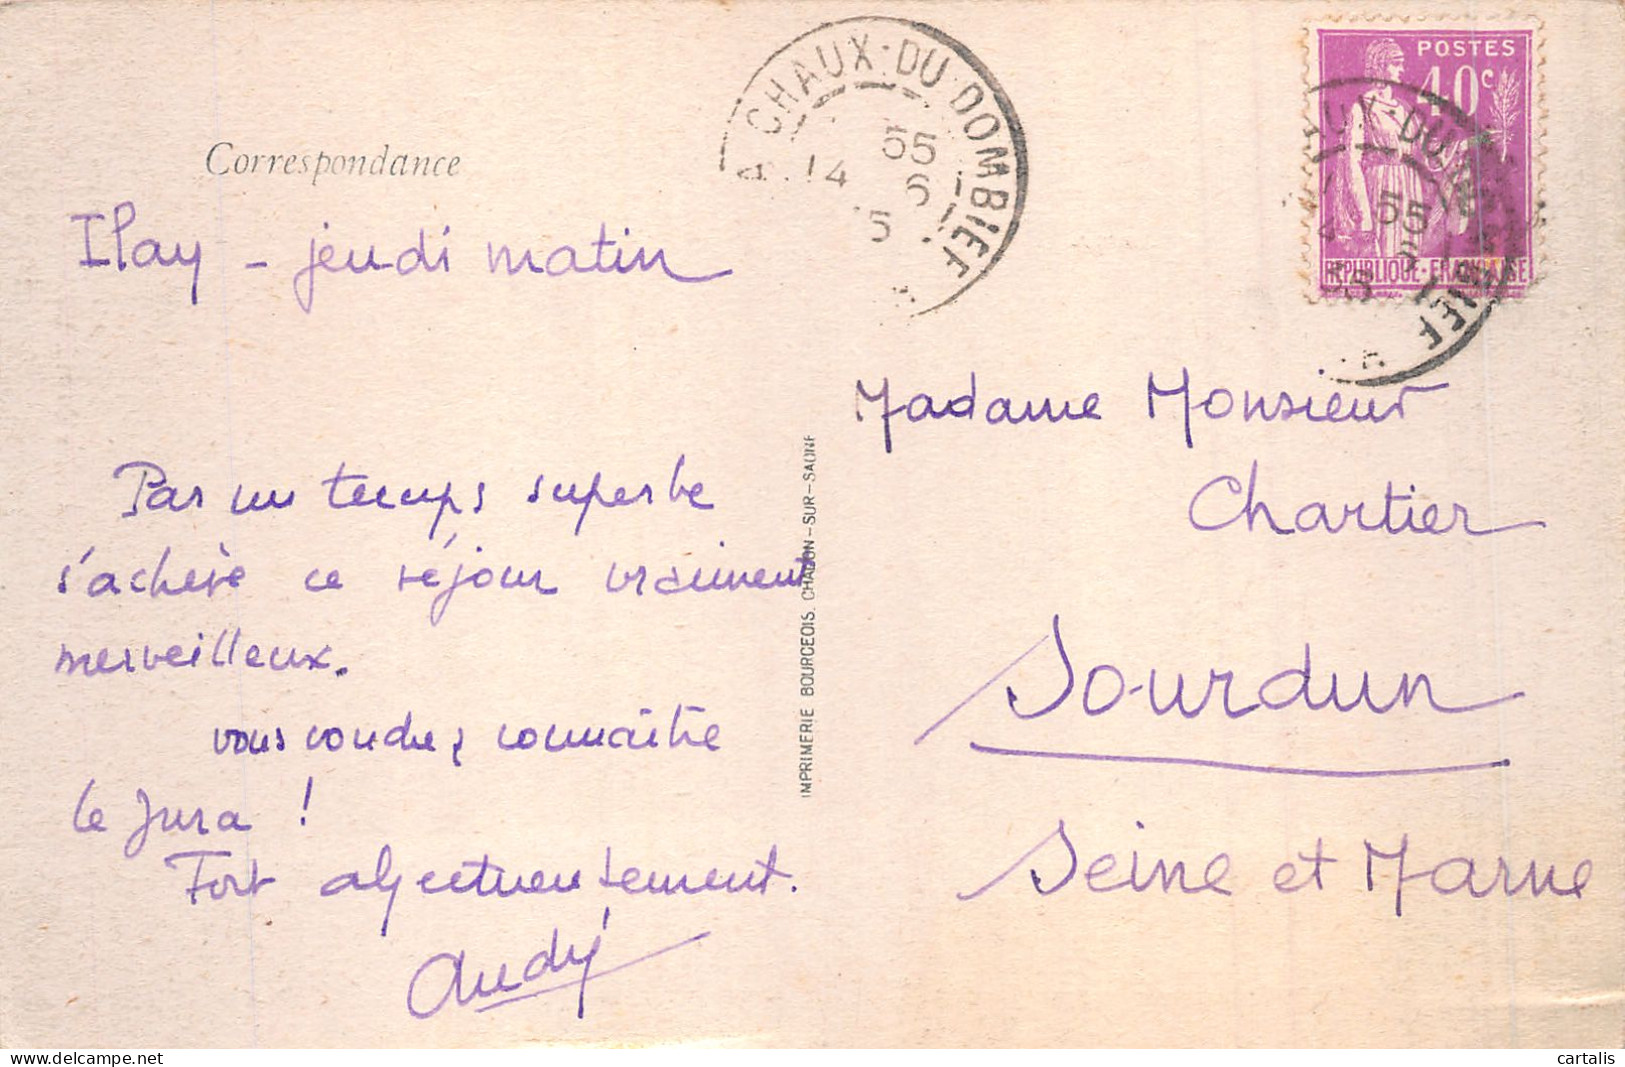 Correspondance
CHAUX-DU-DOMBIEF
14 55
6
5
POSTES
40c
REPUBLIQUE-FRANÇAISE
Ilay - jeudi matin
Par un temps superbe
s'achève ce séjour vraiment
merveilleux.
vous voudrez connaître
le Jura !
Fort affectueusement.
Andy
IMPRIMERIE BOURGEOIS. CHALON-SUR-SAONE
Madame Monsieur
Chartier
Sourdun
Seine et Marne
delcampe.net
cartalis